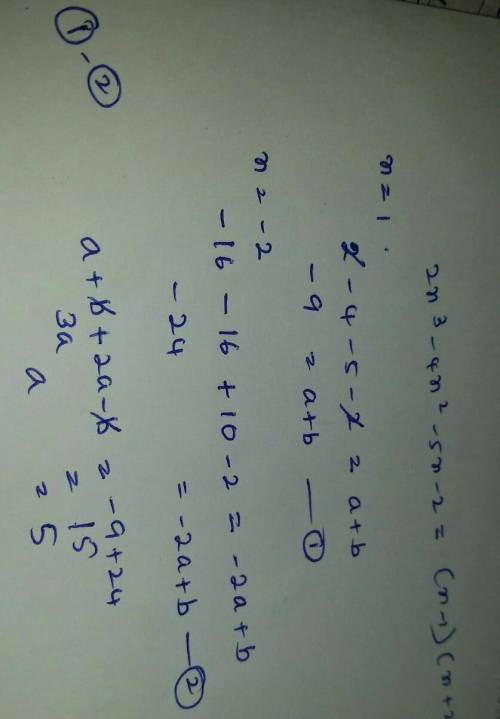 2x³ - 4x² - 5x - 2 = (x-1)(x+2
x = 1
2 - 4 - 5 - 2 = a+b
-9 = a+b — ①
x = -2
-16 - 16 + 10 - 2 = -2a+b
-24 = -2a+b — ②
① - ②
a + b + 2a - b = -9+24
3a = 15
a = 5